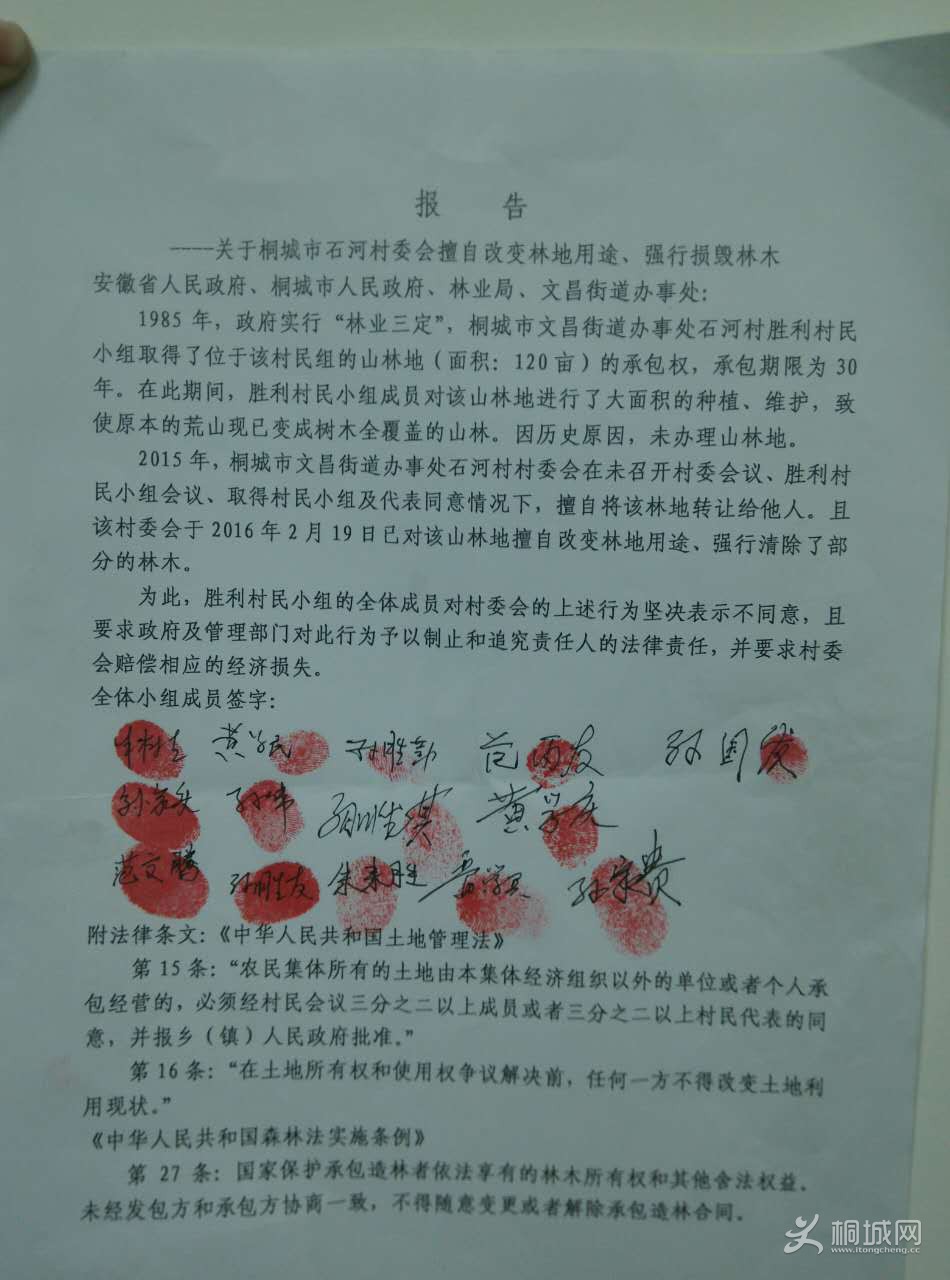 报 告
-----关于桐城市石河村委会擅自改变林地用途、强行损毁林木
安徽省人民政府、桐城市人民政府、林业局、文昌街道办事处：
1985 年，政府实行“林业三定”，桐城市文昌街道办事处石河村胜利村民
小组取得了位于该村民组的山林地（面积：120 亩）的承包权，承包期限为 30
年。在此期间，胜利村民小组成员对该山林地进行了大面积的种植、维护，致
使原本的荒山现已变成树木全覆盖的山林。因历史原因，未办理山林地。
2015 年，桐城市文昌街道办事处石河村村委会在未召开村委会议、胜利村
民小组会议、取得村民小组及代表同意情况下，擅自将该林地转让给他人。且
该村委会于 2016 年 2 月 19 日已对该山林地擅自改变林地用途、强行清除了部
分的林木。
为此，胜利村民小组的全体成员对村委会的上述行为坚决表示不同意，且
要求政府及管理部门对此行为予以制止和追究责任人的法律责任，并要求村委
会赔偿相应的经济损失。
全体小组成员签字：
黄学民 孙胜勤 范丙友 孙国发
孙伟 孙胜其 黄学友
范文腾 孙胜友 朱来胜 孙宗贵
附法律条文：《中华人民共和国土地管理法》
第 15 条：“农民集体所有的土地由本集体经济组织以外的单位或者个人承
包经营的，必须经村民会议三分之二以上成员或者三分之二以上村民代表的同
意，并报乡（镇）人民政府批准。”
第 16 条：“在土地所有权和使用权争议解决前，任何一方不得改变土地利
用现状。”
《中华人民共和国森林法实施条例》
第 27 条：国家保护承包造林者依法享有的林木所有权和其他合法权益。
未经发包方和承包方协商一致，不得随意变更或者解除承包造林合同。
桐城网
www.itongcheng.cc